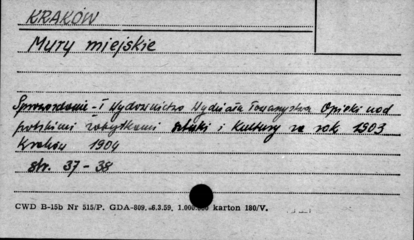 KRAKÓW
Mury miejskie
Sprawozdanie - i Wydawnictwo Wydziału Towarzystwa Opieki nad
polskimi zabytkami sztuki i kultury za rok 1903
Kraków 1904
str. 37 - 38
CWD B-15b Nr 515/P. GDA-809. 6.3.59. 1.000.000 karton 180/V.